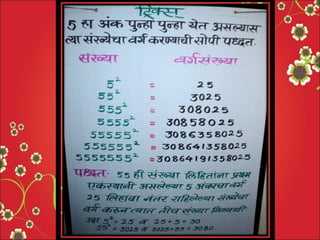 ट्रिक्स
5 हा अंक पुन्हा पुन्हा येत असल्यास
त्या संख्येचा वर्ग करण्याची सोपी पध्दत.
संख्या वर्गसंख्या
5² = 25
55² = 3025
555² = 308025
5555² = 30858025
55555² = 3086358025
555555² = 308641358025
5555555² = 30864191358025
पध्दत:- 55 ही संख्या लिहितांना प्रथम
एकस्थानी असलेल्या 5 अंकाचा वर्ग
25 लिहावा नंतर राहिलेल्या संख्येचा
वर्ग करून त्यात तीच संख्या मिळवावी
उदा. 5² = 25 व 25+5=30
55² = 3025 व 3025+55=3080